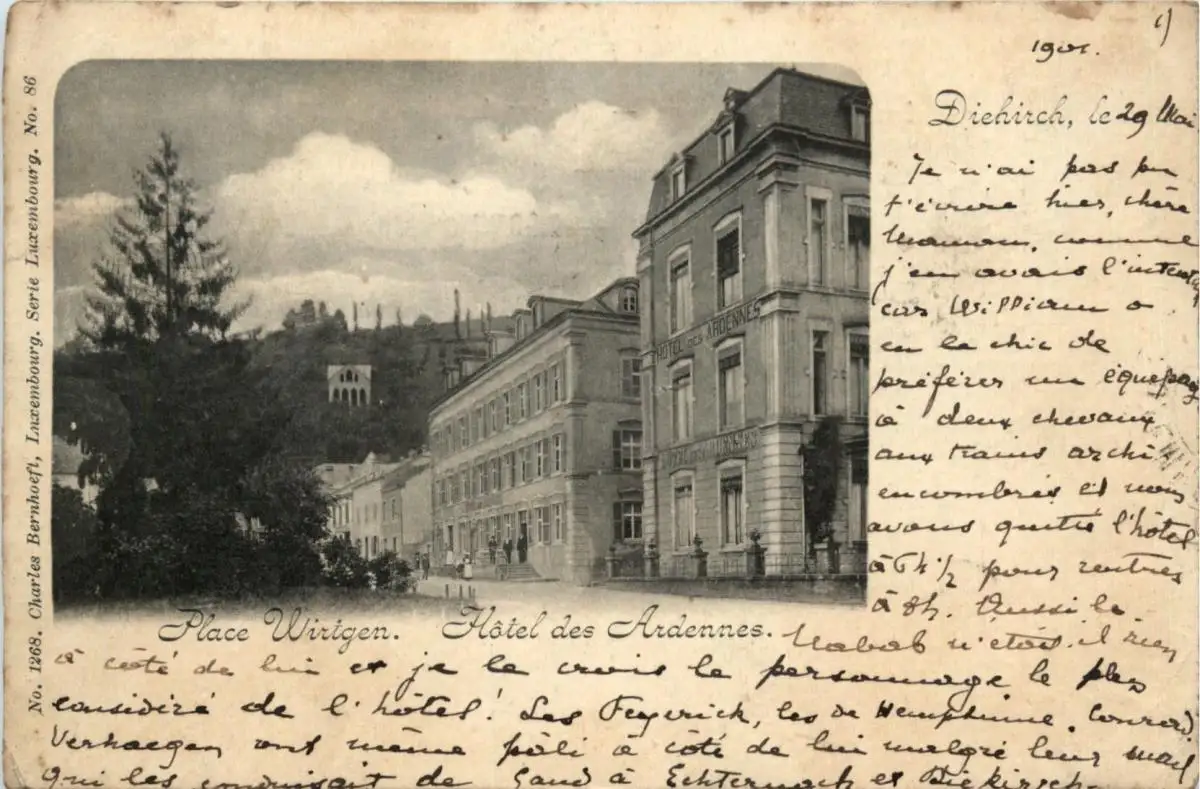 1)
1901.
Diekirch, le 29 Mai
Je n'ai pas pu
t'écrire hier, chère
Maman, comme
j'en avais l'intention
car William a
eu le chic de
préférer un équipage
à deux chevaux
aux trains archi
encombrés et nous
avons quitté l'hôtel
à 6h 1/2 pour rentrer
à 8h. Aussi le
Nabab n'était-il rien
à côté de lui et je le crois le personnage le plus
considéré de l'hôtel! Les Feyerick, les de Hemptinne, Conrard
Verhaegen ont même pâli à côté de lui malgré leur mail
qui les conduisait de Gand à Echternach et Diekirch
Place Wirtgen. Hôtel des Ardennes.
HOTEL DES ARDENNES
No. 1268. Charles Bernhoeft, Luxembourg. Serie Luxembourg. No. 86